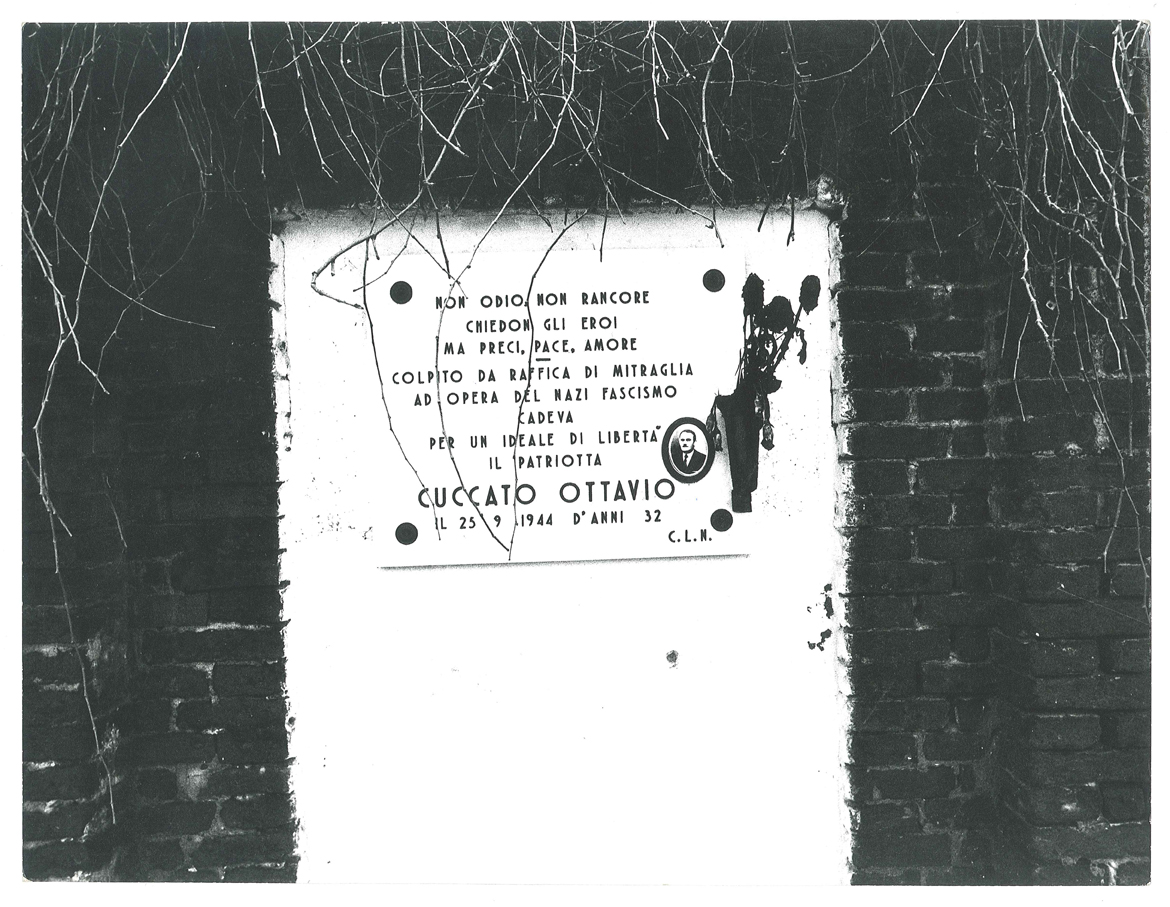 NON ODIO, NON RANCORE
CHIEDON GLI EROI
MA PRECI, PACE, AMORE
COLPITO DA RAFFICA DI MITRAGLIA
AD OPERA DEL NAZI FASCISMO
CADEVA
PER UN IDEALE DI LIBERTA'
IL PATRIOTTA
CUCCATO OTTAVIO
IL 25 9 1944 D'ANNI 32
C.L.N.